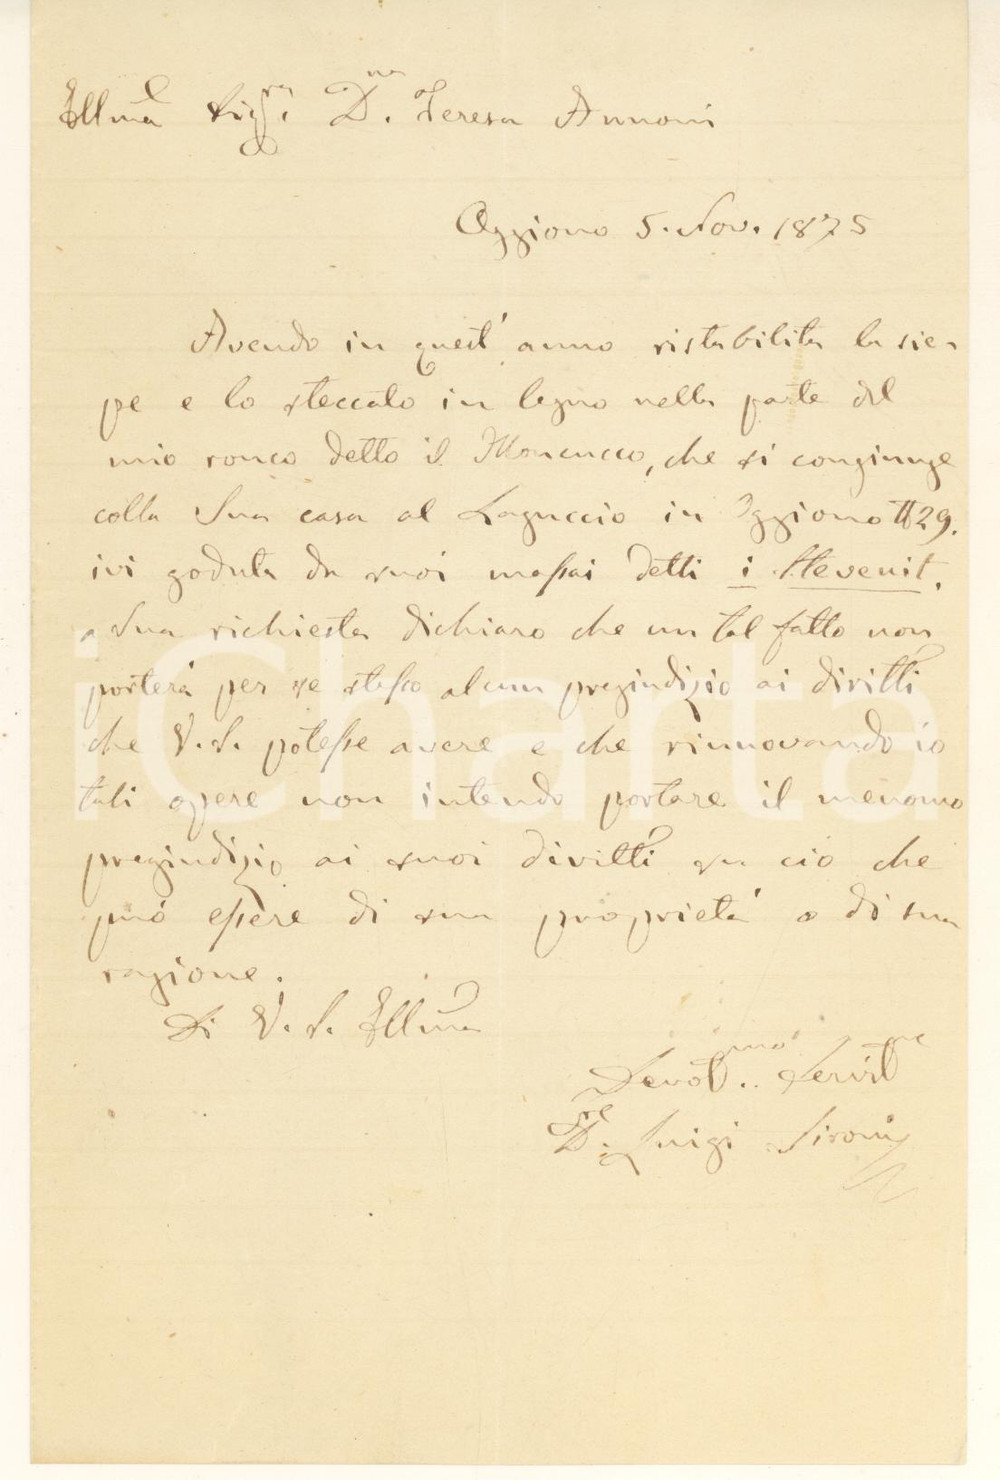 Ill.ma Sig.ra D.na Teresa Annoni
Oggiono 5. Nov. 1875
Avendo in quest' anno ristabilita la sie-
pe e lo steccato in legno nella parte del
mio ronco detto il Moncucco, che si congiunge
colla Sua casa al Laguccio in Oggiono N 29.
ivi goduta da suoi massai detti i Stevenit.
a Sua richiesta dichiaro che un tal fatto non
porterá per se stesso alcun pregiudizio ai diritti
che V. S. potesse avere e che rinnovando io
tali opere non intendo portare il menomo
pregiudizio ai suoi diritti su ció che
puó essere di sua proprietá o di sua
ragione.
Di V. S. Ill.ma
Devot.mo Servit.re
D.re Luigi Sironi
iCharta